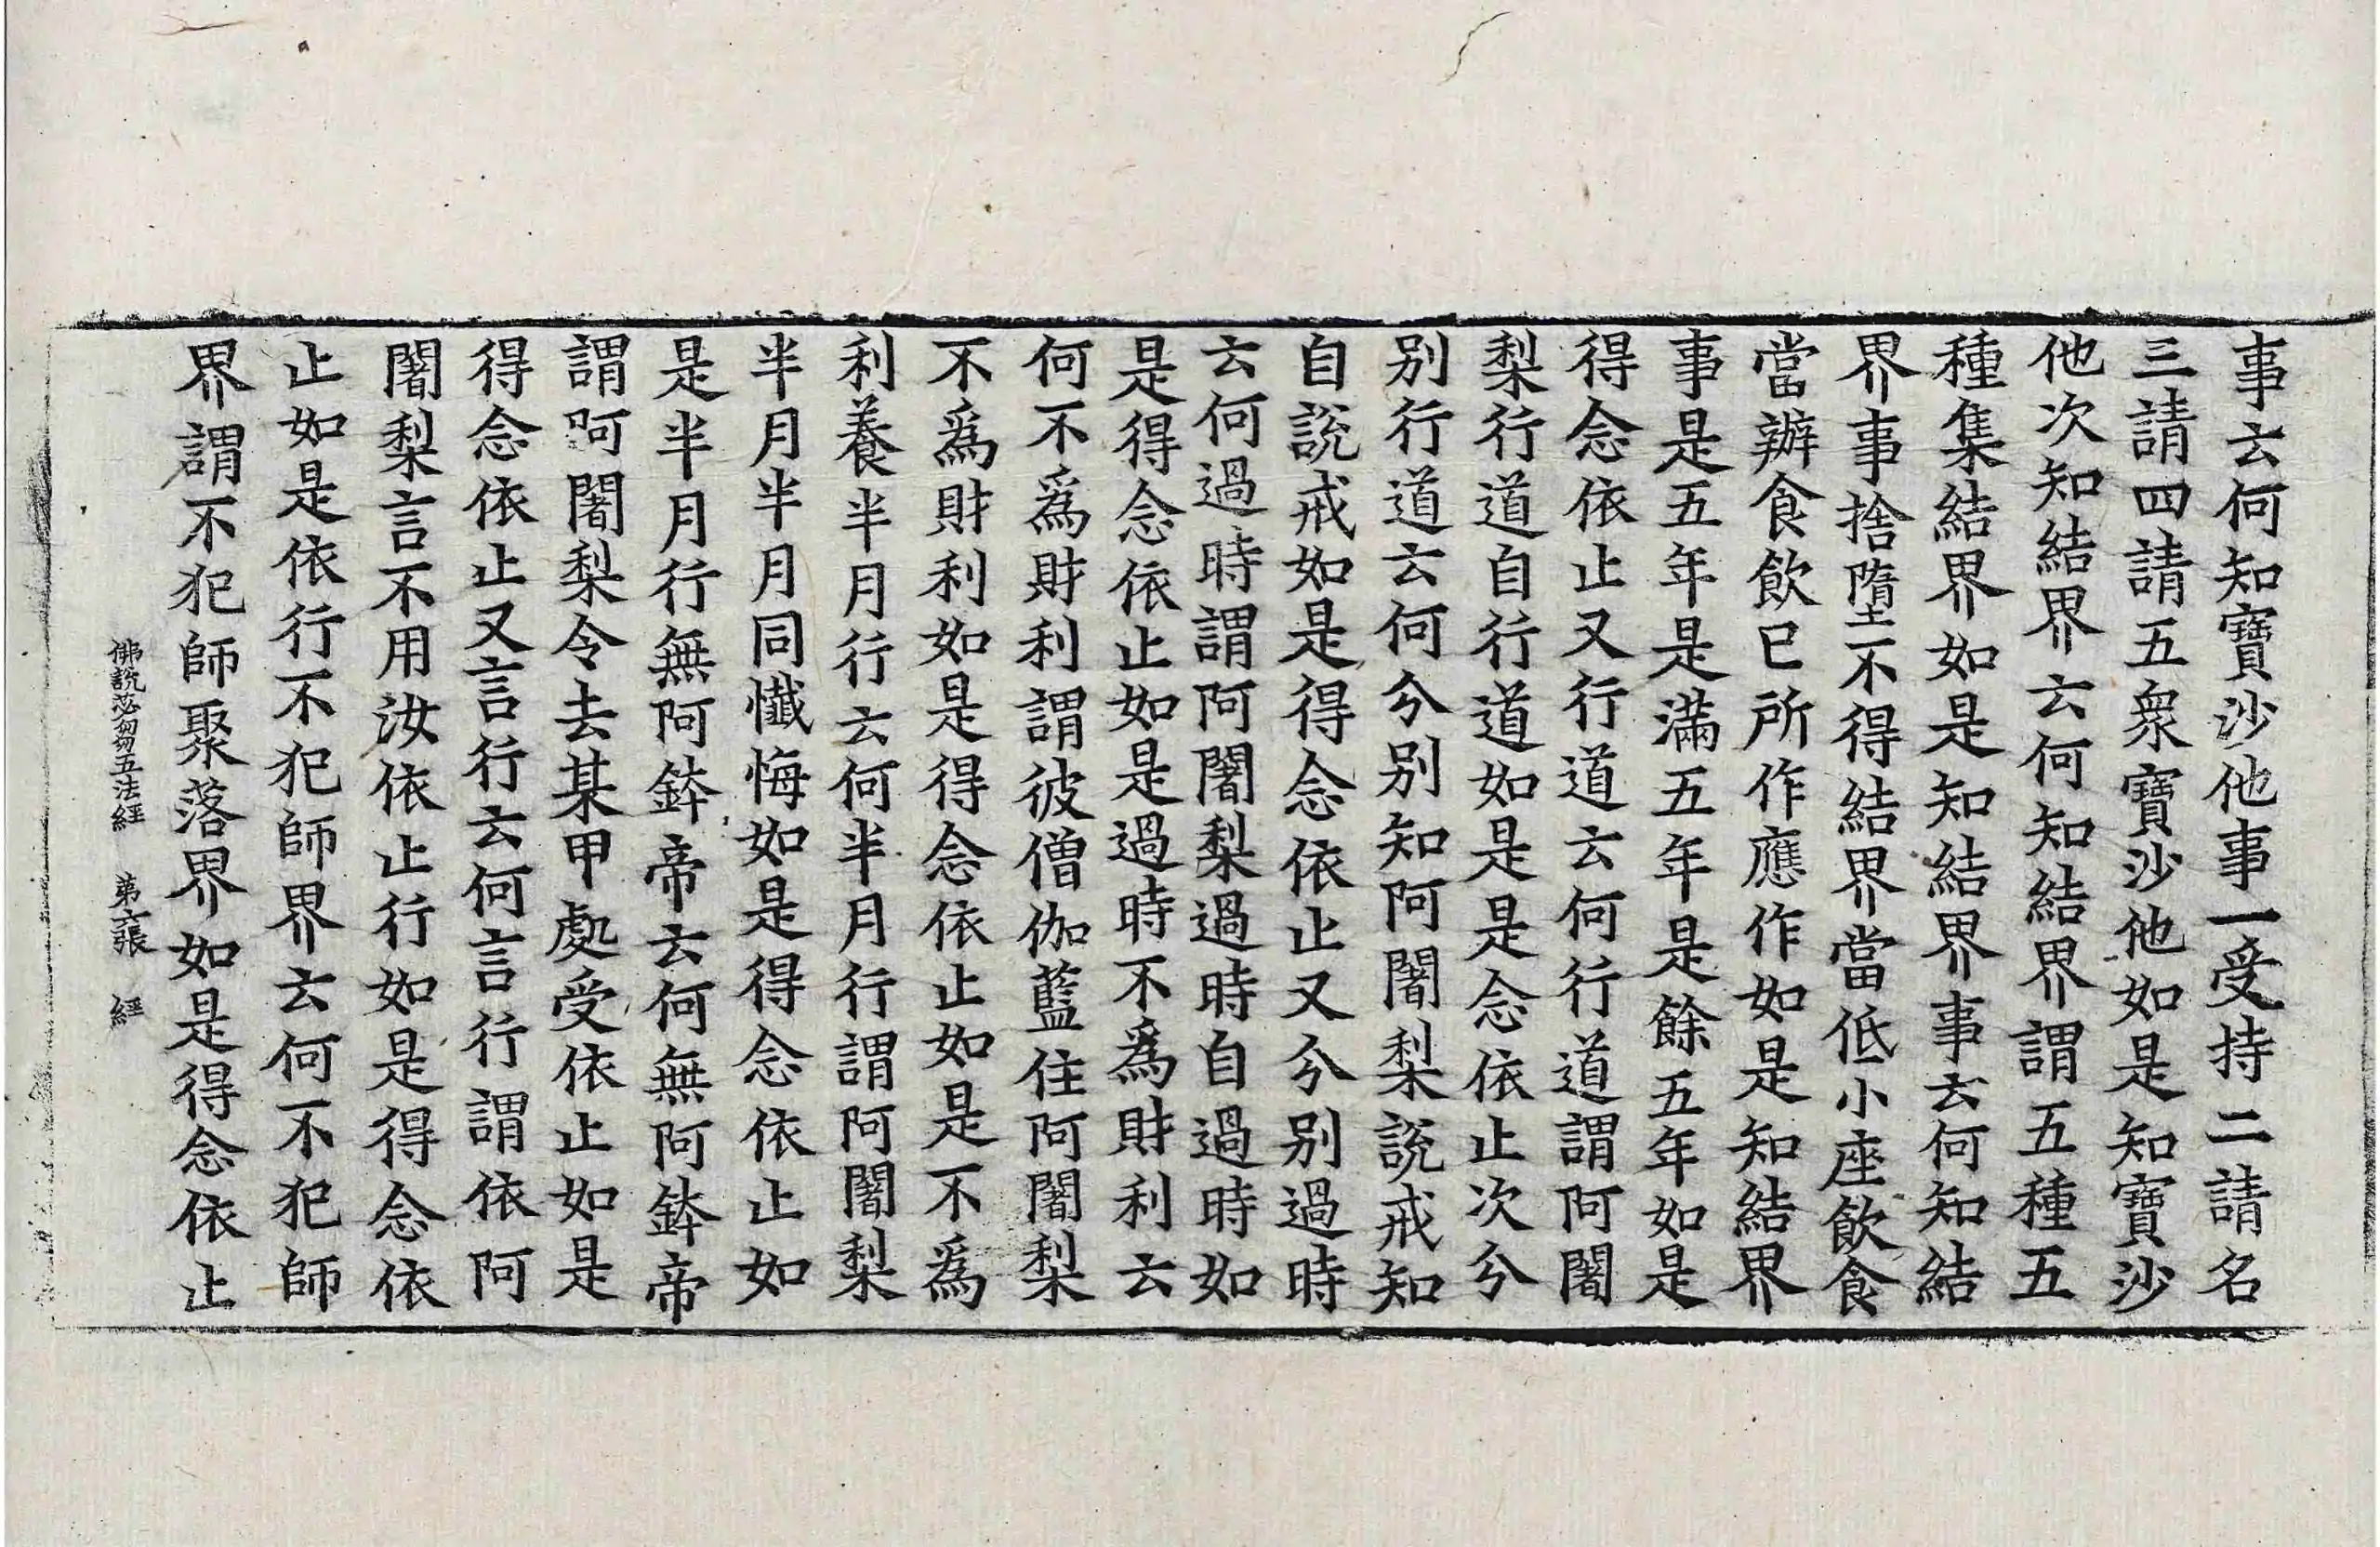 事云何知寶沙他事一受持二請名
三請四請五衆寶沙他如是知寶沙
他次知結界云何知結界謂五種五
種集結界如是知結界事云何知結
界事捨墮不得結界當低小座飲食
當辦食飲已所作應作如是知結界
事是五年是滿五年是餘五年如是
得念依止又行道云何行道謂阿闍
梨行道自行道如是是念依止次兮
别行道云何兮别知阿闍梨說戒知
自說戒如是得念依止又兮别過時
云何過時謂阿闍梨過時自過時如
是得念依止如是過時不爲財利云
何不爲財利謂彼僧伽藍住阿闍梨
不爲財利如是得念依止如是不爲
利養半月行云何半月行謂阿闍梨
半月半月同懺悔如是得念依止如
是半月行無阿鉢帝云何無阿鉢帝
謂阿闍梨令去某甲處受依止如是
得念依止又言行云何言行謂依阿
闍梨言不用汝依止行如是得念依
止如是依行不犯師界云何不犯師
界謂不犯師聚落界如是得念依止
佛說苾芻五法經 第六張 經